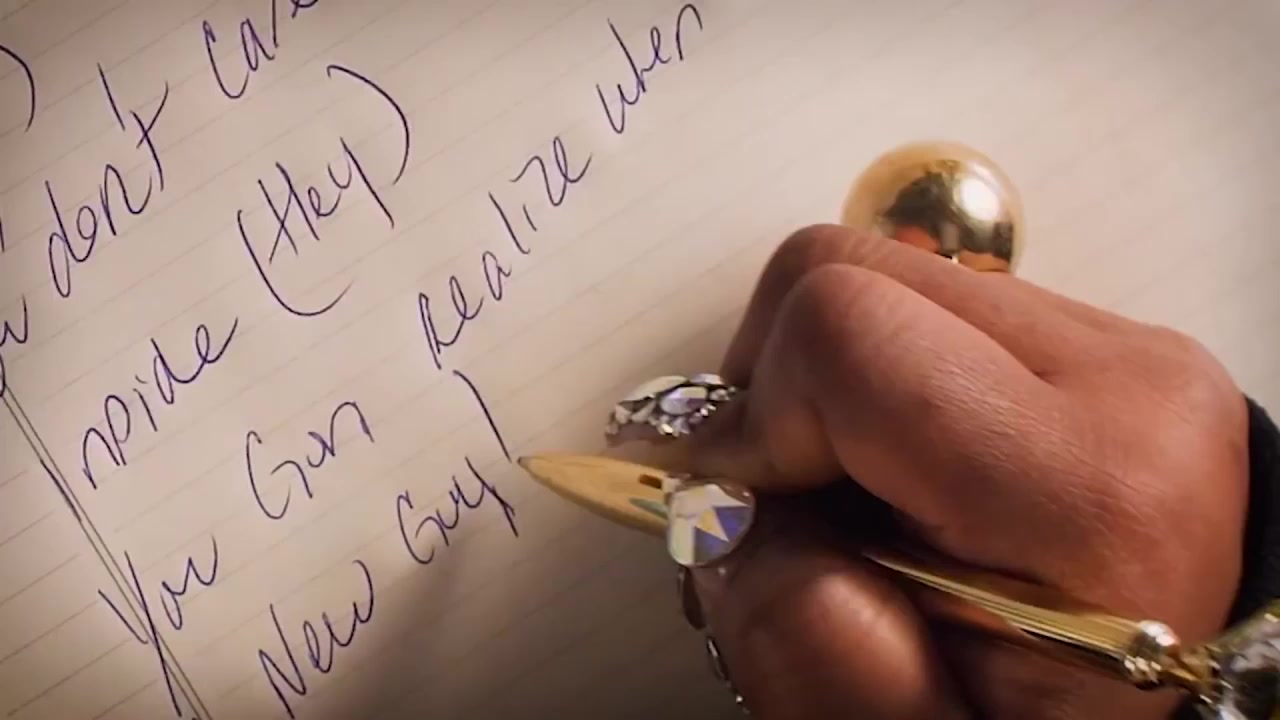 )
don't care
nside (Hey)
You Gon realize when
New Guy)